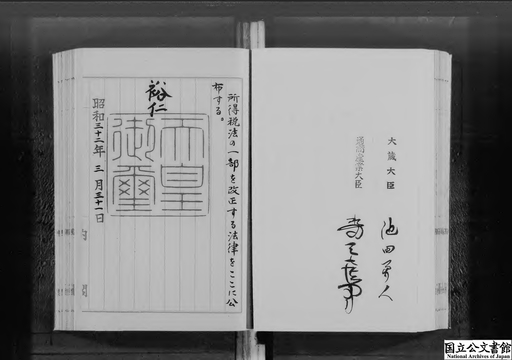 大蔵大臣
池田勇人
所得税法の一部を改正する法律をここに公
布する。
裕仁
天皇
御璽
昭和三十二年三月三十一日
内閣
国立公文書館
National Archives of Japan